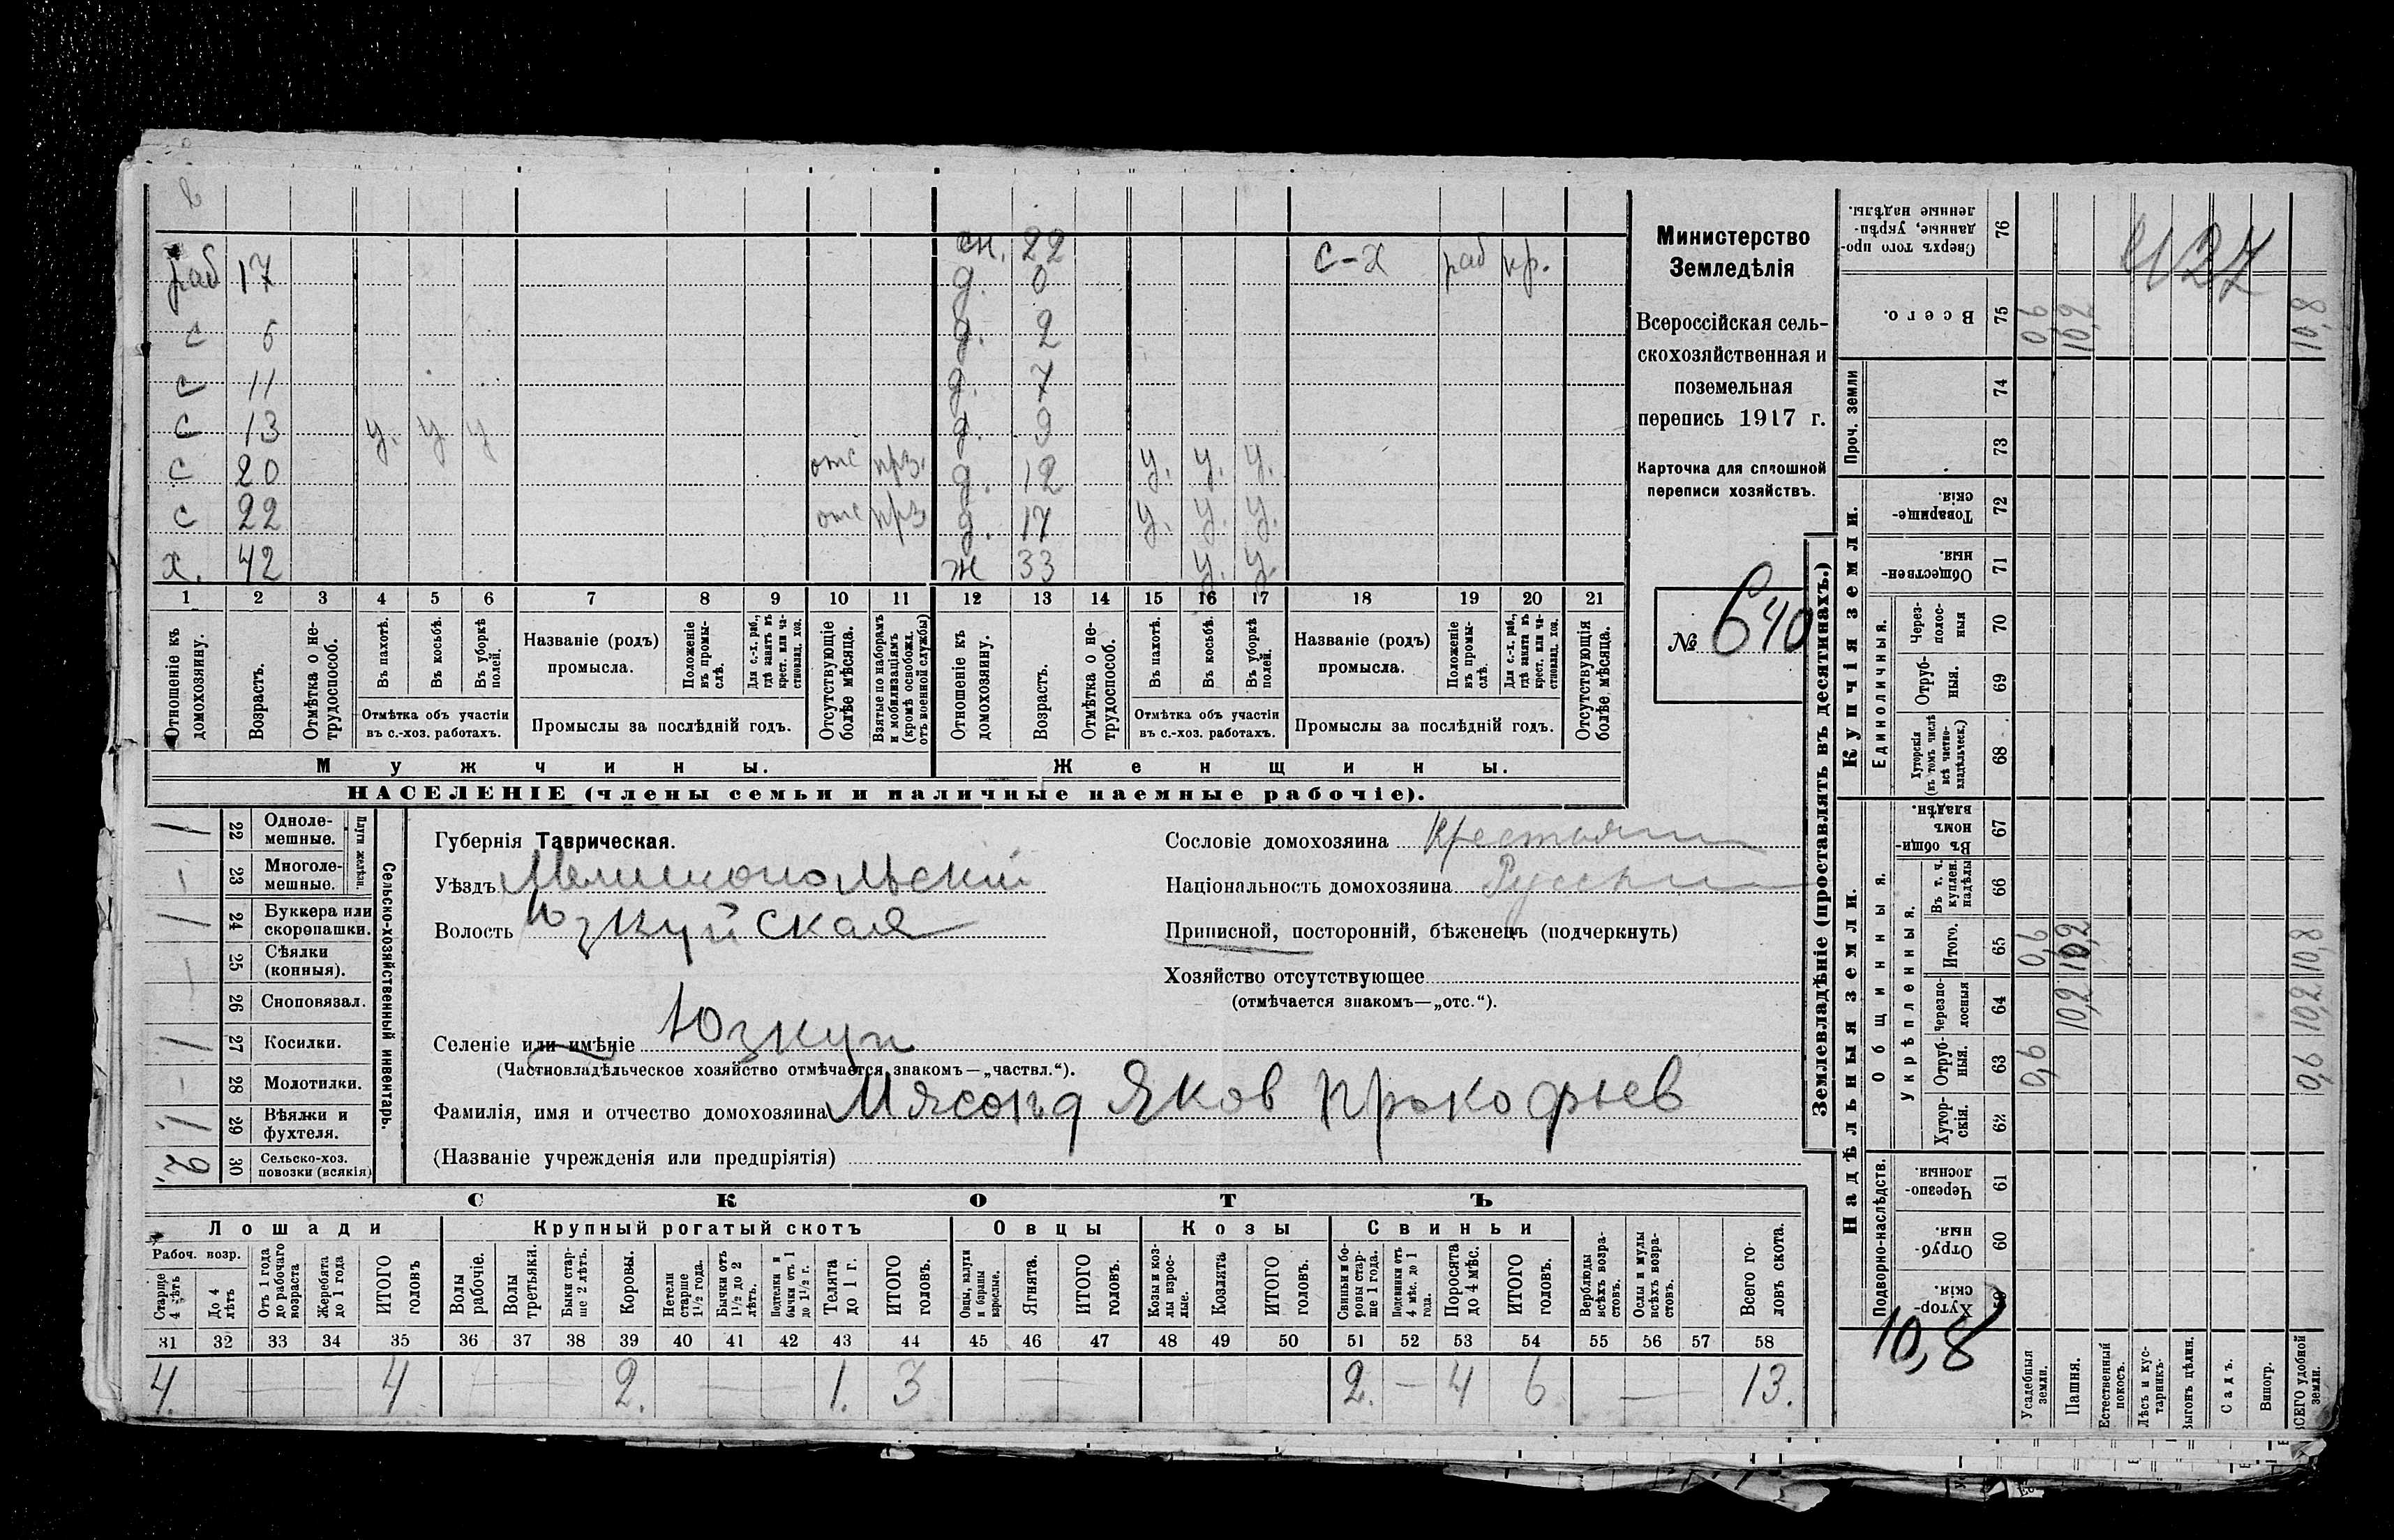 сн. 22
раб 17 д. 0 С-Х раб кр.
с 6 д. 2
с 11 д. 7
с 13 у. у у д. 9
с 20 отс прз. д. 12 у. у. у.
с 22 отс прз д. 17 у. у. у.
х. 42 ж 33 у. у.
1 2 3 4 5 6 7 8 9 10 11 12 13 14 15 16 17 18 19 20 21
Отношеніе къ домохозяину.
Возрастъ.
Отмѣтка о не-трудоспособ.
Въ пахотѣ.
Въ косьбѣ.
Въ уборкѣ полей.
Отмѣтка объ участіи
въ с.-хоз. работахъ.
Названіе (родъ)
промысла.
Положеніе въ промы-слѣ.
Для с.-х. раб., гдѣ занятъ въ крест. или ча-стновлад. хоз.
Промыслы за послѣдній годъ.
Отсутствующіе болѣе мѣсяца.
Взятые по наборамъ и мобилизаціямъ (кромѣ освобожд. отъ военной службы)
Отношеніе къ домохозяину.
Возрастъ.
Отмѣтка о не-трудоспособ.
Въ пахотѣ.
Въ косьбѣ.
Въ уборкѣ полей.
Отмѣтка объ участіи
въ с.-хоз. работахъ.
Названіе (родъ)
промысла.
Положеніе въ промы-слѣ.
Для с.-х. раб., гдѣ занята въ крест. или ча-стновлад. хоз.
Промыслы за послѣдній годъ.
Отсутствующія болѣе мѣсяца.
Мужчины. Женщины.
НАСЕЛЕНІЕ (члены семьи и наличные наемные рабочіе).
Министерство
Земледѣлія
Всероссійская сель-
скохозяйственная и
поземельная
перепись 1917 г.
Карточка для сплошной
переписи хозяйствъ.
№ 640
Сельско-хозяйственный инвентарь.
Плуги желѣзн.
1 22 Одноле-мешные.
23 Многоле-мешные.
1 24 Буккера или скоропашки.
25 Сѣялки (конныя).
26 Сноповязал.
1 27 Косилки.
- 28 Молотилки.
1 29 Вѣялки и фухтеля.
2 30 Сельско-хоз. повозки (всякія)
Губернія Таврическая.
Уѣздъ Мелитопольскій
Волость Юзкуйская
Селеніе или имѣніе Юзкуи
(Частновладѣльческое хозяйство отмѣчается знакомъ—„частвл.“).
Фамилія, имя и отчество домохозяина Мясоѣд Яков Прокофьев
(Названіе учрежденія или предпріятія)
Сословіе домохозяина Крестьянин
Національность домохозяина Русский
Приписной, посторонній, бѣженецъ (подчеркнуть)
Хозяйство отсутствующее
(отмѣчается знакомъ—„отс.“).
СКОТЪ
Лошади Крупный рогатый скотъ Овцы Козы Свиньи
Рабоч. возр.
Старше 4 лѣтъ
До 4 лѣтъ
Отъ 1 года до рабочаго возраста
Жеребята до 1 года
ИТОГО головъ
Волы рабочіе.
Волы третьяки.
Быки стар-ше 2 лѣтъ.
Коровы.
Нетели старше 1½ года.
Бычки отъ 1½ до 2 лѣтъ.
Подтелки и бычки отъ 1 до 1½ г.
Телята до 1 г.
ИТОГО головъ.
Овцы, валухи и бараны взрослые.
Ягнята.
ИТОГО головъ.
Козы и коз-лы взрос-лые.
Козлята
ИТОГО головъ.
Свиньи и бо-ровы стар-ше 1 года.
Подсвинки отъ 4 мѣс. до 1 года.
Поросята до 4 мѣс.
ИТОГО головъ.
Верблюды всѣхъ возра-стовъ.
Ослы и мулы всѣхъ возра-стовъ.
Всего го-ловъ скота.
31 32 33 34 35 36 37 38 39 40 41 42 43 44 45 46 47 48 49 50 51 52 53 54 55 56 57 58
4. — — 4 — 2. — 1. 3 — — 2. — 4 6 — 13.
Землевладѣніе (проставлять въ десятинахъ.)
Надѣльныя земли. Купчія земли.
Проч. земли
Подворно-наслѣдств.
Общинныя.
Укрѣпленныя.
Единоличныя.
Сверхъ того про-данные, укрѣп-ленные надѣлы. 76
Всего. 75 0,6 10,2 10,8
74
73
Товарище-скія. 72
Обществен-ныя. 71
Через-полос-ныя 70
Отруб-ныя. 69
Хуторскія (въ томъ числѣ всѣ частно-владѣльческ.) 68
Въ общин-номъ владѣн. 67
Въ т. ч. куплен. надѣлы 66
Итого. 65 0,6 10,2 10,8
Черезпо-лосныя 64 10,2 10,2
Отруб-ныя. 63 0,6 0,6
Хутор-скія. 62
Черезпо-лосныя. 61
Отруб-ныя. 60
Хутор-скія. 59
10,8
Усадебныя земли.
Пашня.
Естественный покосъ.
Лѣсъ и кус-тарникъ.
Выгонъ цѣлин.
Садъ.
Виногр.
ВСЕГО удобной земли.